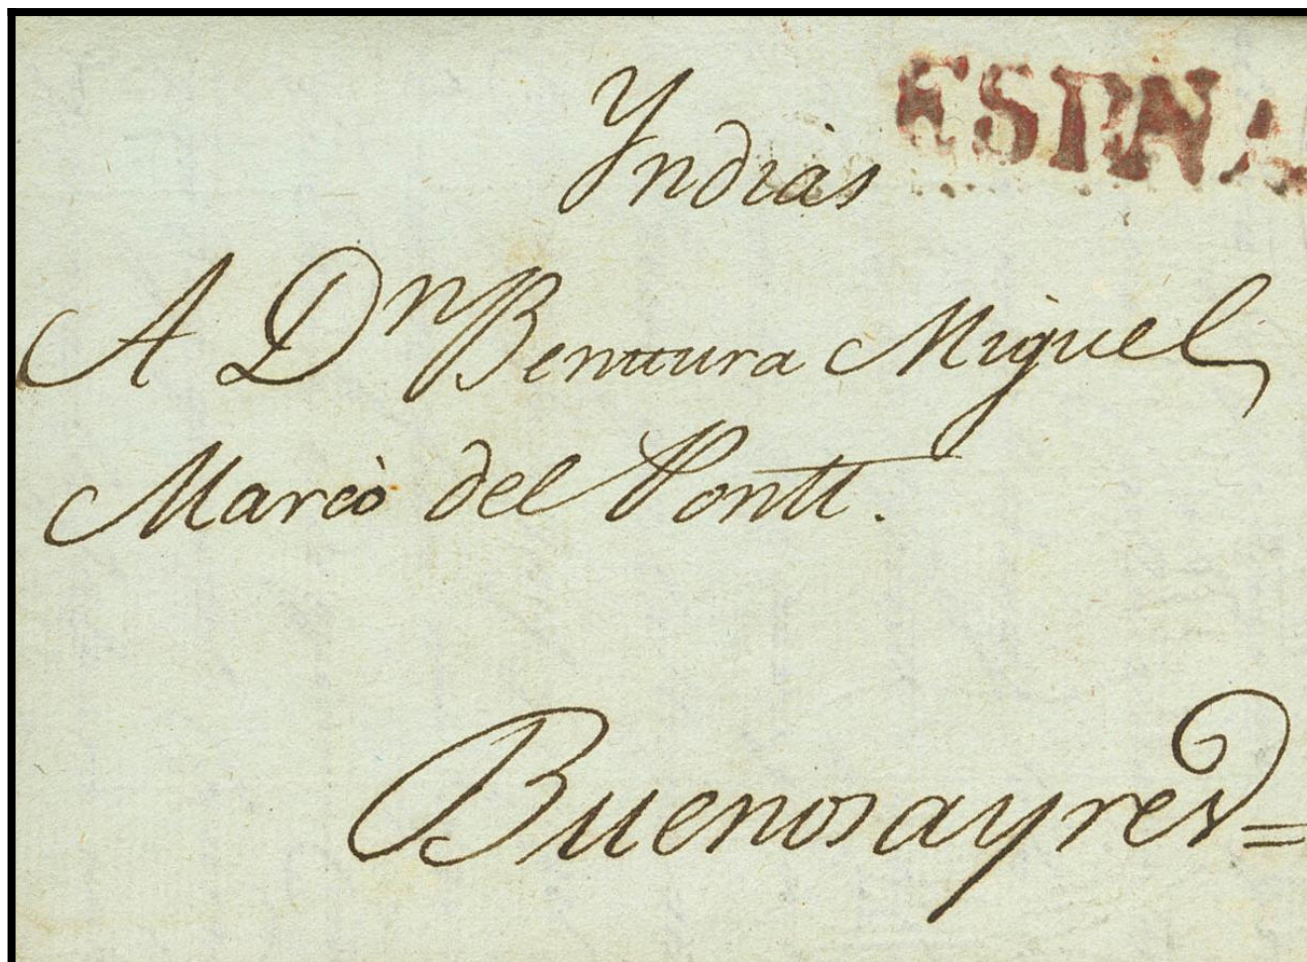 Yndias ESPNA
A Dn Benttura Miguel
Marcò del Pontt.
Buenosayres=